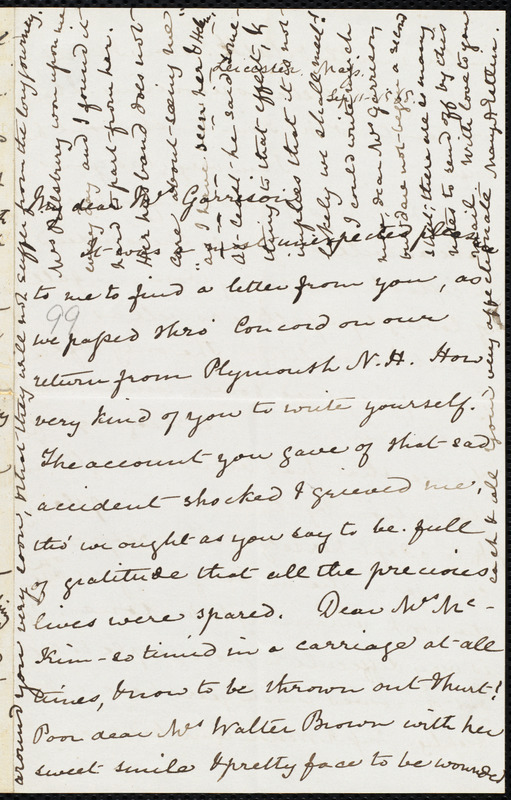 Leicester, Mass.
Sept.
My dear Mr Garrison,
It was a most unexpected pleasure
to me to find a letter from you, as
we passed thro' Concord on our
return from Plymouth N.H. How
very kind of you to write yourself.
The account you gave of that sad
accident shocked & grieved me,
tho' we ought as you say to be full
of gratitude that all the precious
lives were spared. Dear Mrs Mc-
Kim - so timid in a carriage at all
times, & now to be thrown out & hurt!
Poor dear Mrs Walter Brown with her
sweet smile & pretty face to be wounded
99
around you very soon, & that they will not suffer from the long journey.
Mrs Pillsbury won upon me
every day and I found it
hard to part from her.
Her husband does not
care about seeing me
"as I have seen her &
as well he said some
thing to that effect, &
implies that it is not
likely we shall meet!
I could write much
more dear Mr Garrison
but dare not begin a second
sheet; there are so many
notes to send off by this
mail. With love to you
each & all your very affectionate Mary A Estlin.